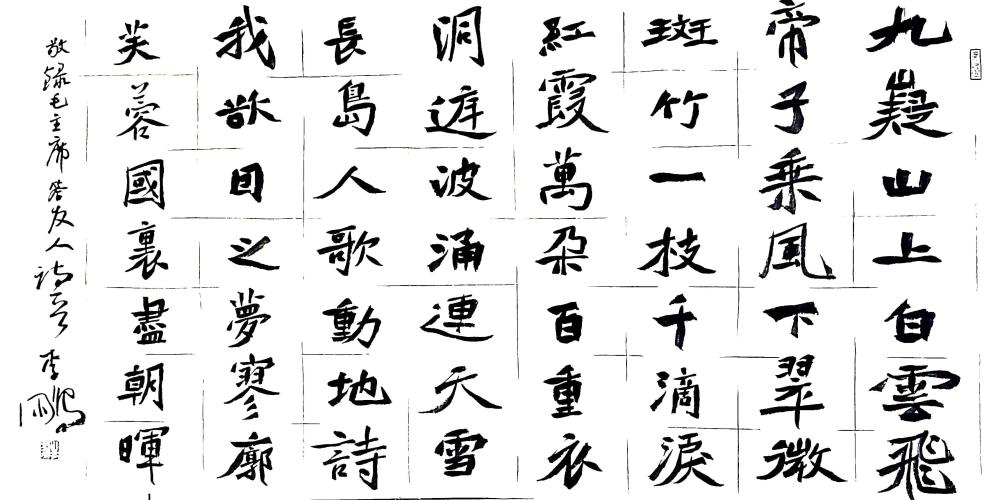 九嶷山上白雲飛
帝子乘風下翠微
斑竹一枝千滴淚
紅霞萬朵百重衣
洞庭波涌連天雪
長島人歌動地詩
我欲因之夢寥廓
芙蓉國裏盡朝暉
敬録毛主席答友人詩一首 李